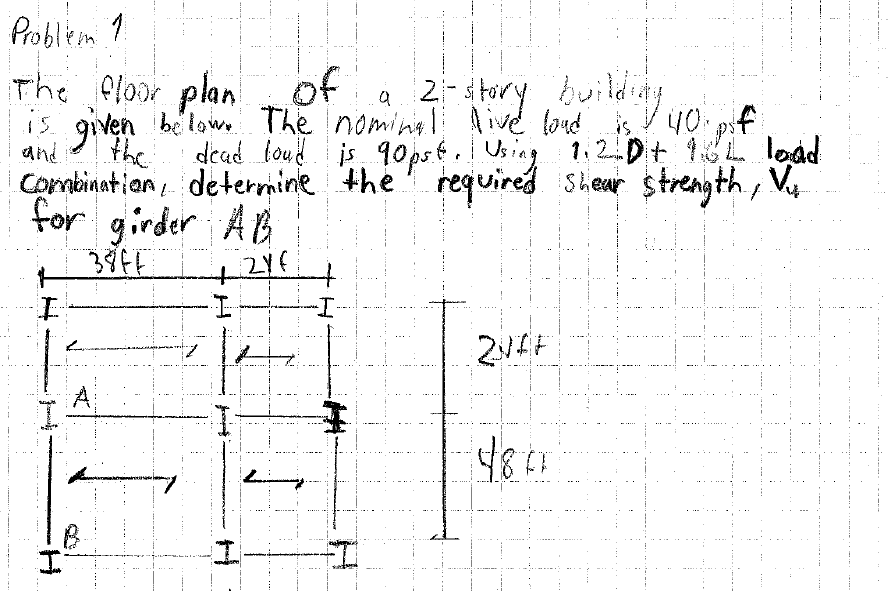 Problem 1
The floor plan of a 2-story building
is given below. The nominal live load is 40 psf
and the dead load is 90psf. Using 1.2D + 1.6L load
combination, determine the required shear strength, Vu
for girder AB
38ft 24f
24ft
A
48ft
B